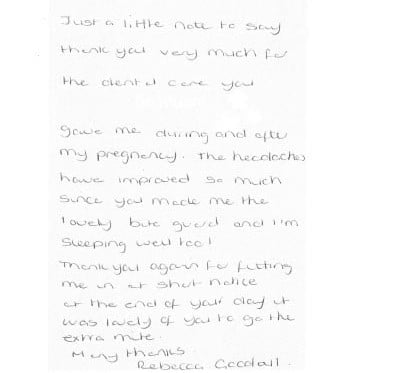 Just a little note to say
thank you very much for
the dental care you
gave me during and after
my pregnancy. The headaches
have improved so much
since you made me the
lovely bite guard and I'm
sleeping well too!
Thank you again for fitting
me in at short notice
at the end of your day it
was lovely of you to go the
extra mile.
Many thanks.
Rebecca Goodall.